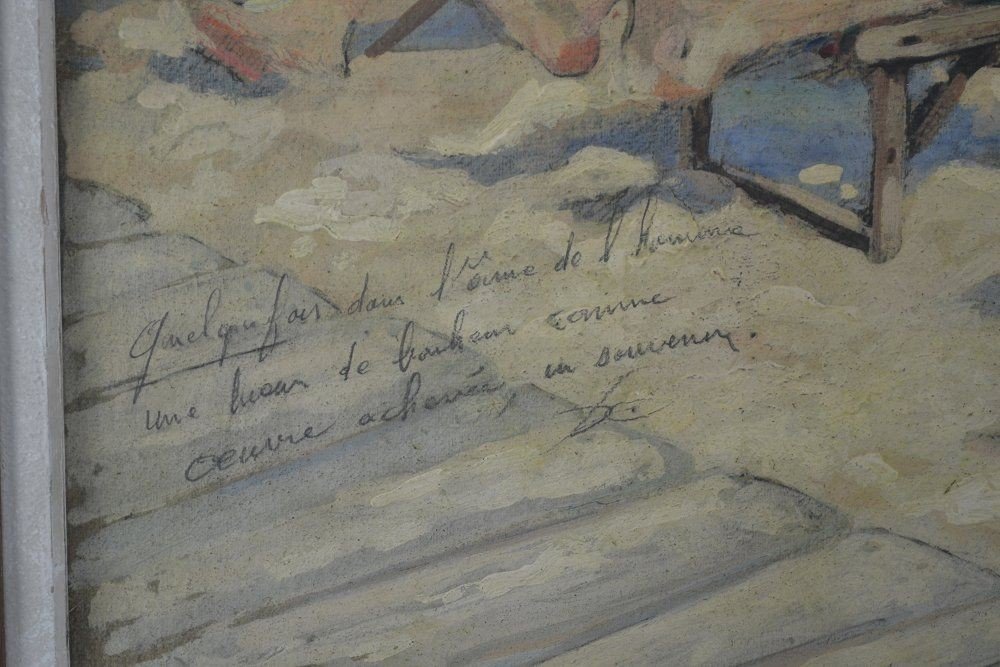 Quelquefois dans l'âme de l'homme
une lueur de bonheur comme
œuvre achevée, un souvenir.